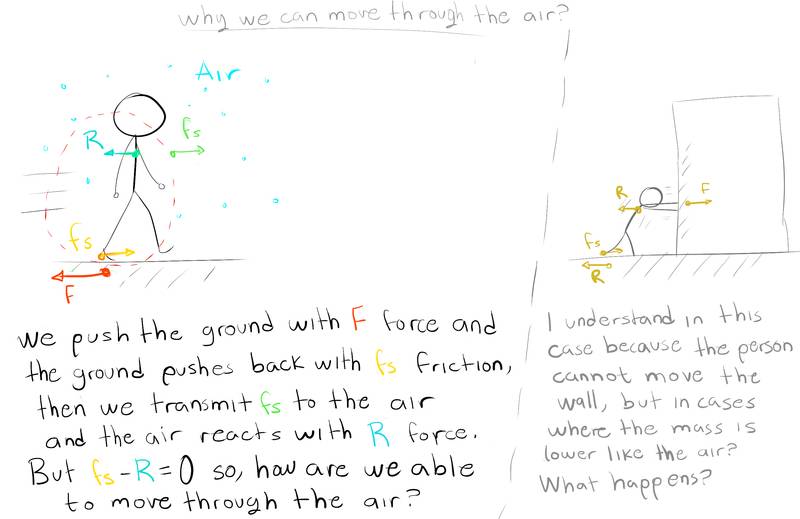 why we can move through the air?
Air
R
fs
fs
F
we push the ground with F force and
the ground pushes back with fs friction,
then we transmit fs to the air
and the air reacts with R force.
But fs-R=0 so, how are we able
to move through the air?
R
F
fs
R
I understand in this
case because the person
cannot move the
wall, but in cases
where the mass is
lower like the air?
What happens?